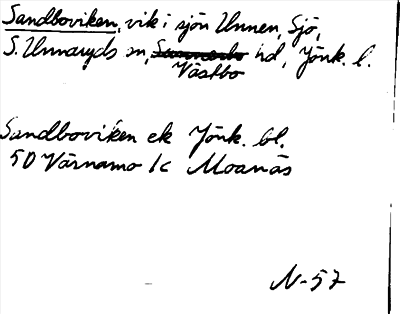 Sandboviken, vik i sjön Unnen, Sjö,
S. Unnaryds sn, Sunnerbo hd, Jönk. l.
Västbo
Sandboviken ek Jönk. bl.
5D Värnamo 1c Moanäs
N-57